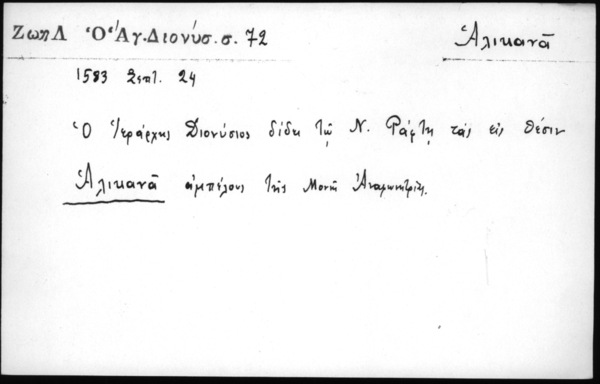 Ζωη Λ Ὁ Ἅγ. Διονύσ. σ. 72
Ἀλικανᾶ
1583 Σεπτ. 24
Ὁ Ἱεράρχης Διονύσιος δίδει τῷ Ν. Ράφτῃ τάς εἰς θέσιν
Ἀλικανᾶ ἀμπέλους τῆς Μονῆς Ἀναφωνητρίας.